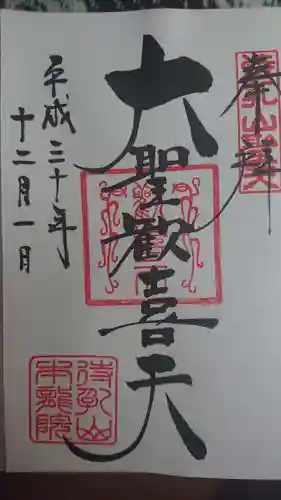 奉拝
大聖歓喜天
平成三十年
十二月一日
待乳山
本龍院